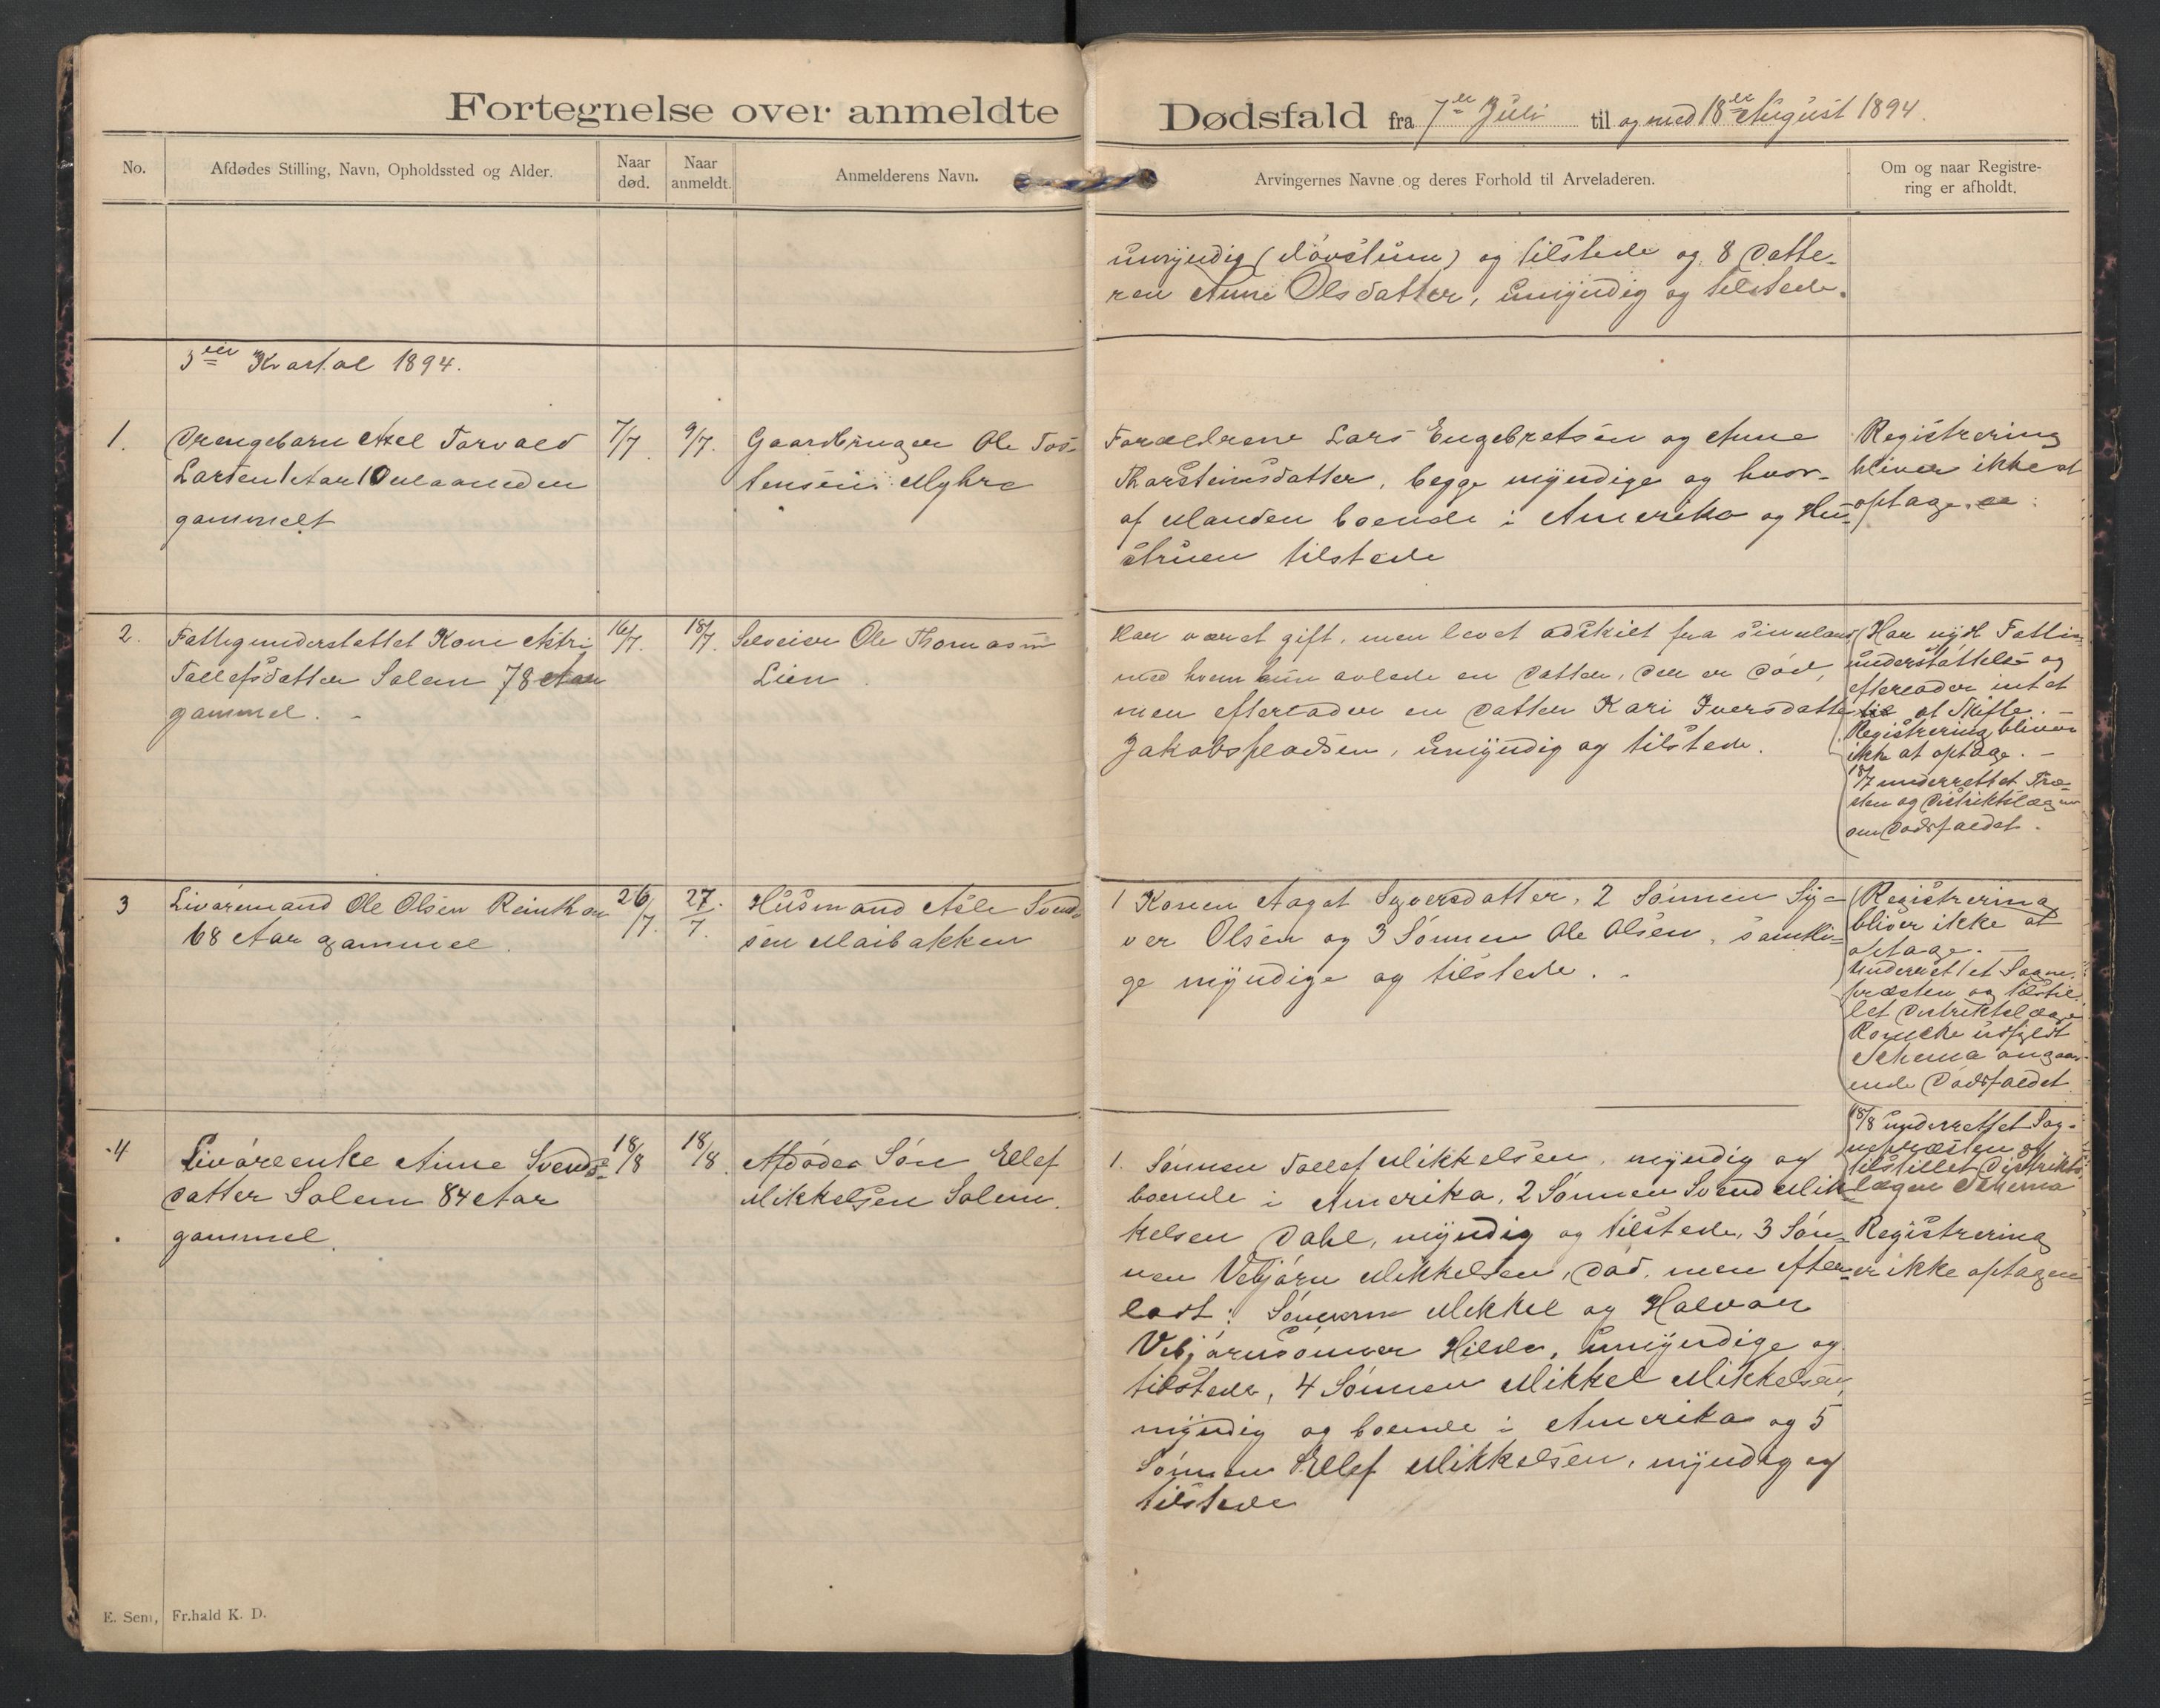 Fortegnelse over anmeldte Dødsfald fra 7de Juli til og med 18de August 1894.
No.
Afdødes Stilling, Navn, Opholdssted og Alder.
Naar død.
Naar anmeldt.
Anmelderens Navn.
Arvingernes Navne og deres Forhold til Arveladeren.
Om og naar Registre-
ring er afholdt.
umyndig (døvstum) og tilstede og 8 Datte-
ren Anne Olsdatter, umyndig og tilstede.
3die Kvartal 1894.
1.
Drengebarn Axel Torvald
Larsen 1 Aar 10 Maaneder
gammelt
7/7.
9/7.
Gaardbruger Ole Tos-
tensen Myhre
Forældrene Lars Engebretsen og Anne
Thorsteinsdatter, begge myndige og hvor-
af Manden boende i Amerika og Hu-
struen tilstede
Registrering
bliver ikke at
optage.
2.
Fattigunderstøttet Kone Astri
Tollefsdatter Solem 78 Aar
gammel.
16/7.
18/7.
Selveier Ole Thomasen
Lien
Har været gift, men levet adskilt fra sin Mand
med hvem hun avlede en Datter, der er død,
men efterlader en Datter Kari Iversdatter
Jakobspladsen, umyndig og tilstede.
Har nydt Fattig-
understøttelse og
efterlader intet
til at Skifte.
Registrering bliver
ikke at optage.
18/7 underrettet Præ-
sten og Distriktslægen
om Dødsfaldet.
3
Livøremand Ole Olsen Reinthon
68 Aar gammel.
26/7.
27/7.
Husmand Asle Svend-
sen Maibakken
1 Konen Aagot Syversdatter, 2 Sønnen Sy-
ver Olsen og 3 Sønnen Ole Olsen, samtli-
ge myndige og tilstede.
Registrering
bliver ikke at
optage.
Underrettet Sogne-
præsten og tilstil-
let Distriktslæge
udfyldt
Schema angaa-
ende Dødsfaldet
4
Livøreenke Anne Svends-
datter Solem 84 Aar
gammel.
18/8
18/8.
Afdødes Søn Ellef
Mikkelsen Solem.
1. Sønnen Tollef Mikkelsen, myndig og
boende i Amerika, 2 Sønnen Svend Mik-
kelsen Dahl, myndig og tilstede, 3 Søn-
nen Vebjørn Mikkelsen, død, men efter-
ladt: Sønnerne Mikkel og Halvor
Vebjørnsønner Hilde, umyndige og
tilstede, 4 Sønnen Mikkel Mikkelsen,
myndig og boende i Amerika og 5
Sønnen Ellef Mikkelsen, myndig og
tilstede
18/8 underrettet Sog-
nepræsten og
tilstillet Distrikts-
lægen Schema
Registrering
er ikke optagen
E. Sem, Fr.hald K. D.